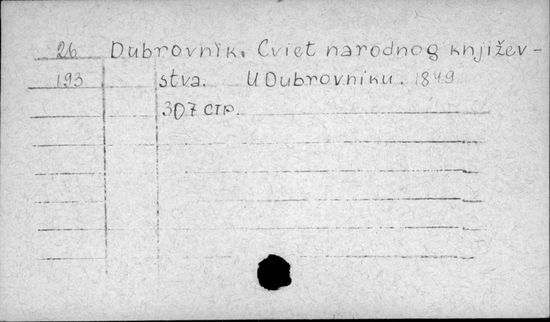 26 Dubrovnik. Cviet narodnog književ-
193 stva. U Dubrovniku. 1849
307 стр.